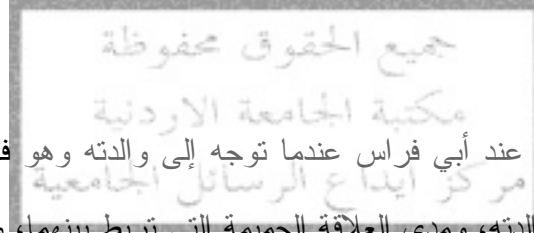 جميع الحقوق محفوظة
مكتبة الجامعة الاردنية
عند أبي فراس عندما توجه إلى والدته وهو
مركز ايداع الرسائل الجامعية
ومدى العلاقة الحميمة التي تربط بينهما،